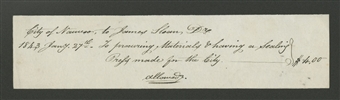 City of Nauvoo to James Sloan, Dr
1843 Jany. 27th. To procuring Materials & having a Sealing
Press made for the City $4,00
allowed